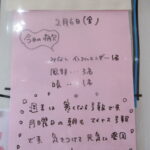 2月6日(金)
今日の病欠
みなし インフルエンザ…1名
風邪…3名
咳…1名
週末は寒くなる予報です
月曜日の朝もマイナス予報
です 気をつけて元気に登園